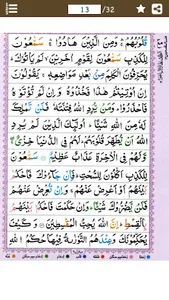 13 /32
قُلُوْبُهُمْ ۛۚ وَمِنَ الَّذِيْنَ هَادُوْا ۛۚ سَمّٰعُوْنَ
لِلْكَذِبِ سَمّٰعُوْنَ لِقَوْمٍ اٰخَرِيْنَ ۙ لَمْ يَاْتُوْكَ ؕ
يُحَرِّفُوْنَ الْكَلِمَ مِنْۢ بَعْدِ مَوَاضِعِهٖ ۚ يَقُوْلُوْنَ
اِنْ اُوْتِيْتُمْ هٰذَا فَخُذُوْهُ وَاِنْ لَّمْ تُؤْتَوْهُ
فَاحْذَرُوْا ؕ وَمَنْ يُّرِدِ اللّٰهُ فِتْنَتَهٗ فَلَنْ تَمْلِكَ لَهٗ
مِنَ اللّٰهِ شَيْـًٔا ؕ اُولٰٓئِكَ الَّذِيْنَ لَمْ يُرِدِ
اللّٰهُ اَنْ يُّطَهِّرَ قُلُوْبَهُمْ ؕ لَهُمْ فِي الدُّنْيَا خِزْيٌ ۖۚ
وَّلَهُمْ فِي الْاٰخِرَةِ عَذَابٌ عَظِيْمٌ سَمّٰعُوْنَ لِلْكَذِبِ
اَكّٰلُوْنَ لِلسُّحْتِ ؕ فَاِنْ جَآءُوْكَ فَاحْكُمْ
بَيْنَهُمْ اَوْ اَعْرِضْ عَنْهُمْ ۚ وَاِنْ تُعْرِضْ عَنْهُمْ
فَلَنْ يَّضُرُّوْكَ شَيْـًٔا ؕ وَاِنْ حَكَمْتَ فَاحْكُمْ بَيْنَهُمْ
بِالْقِسْطِ ؕ اِنَّ اللّٰهَ يُحِبُّ الْمُقْسِطِيْنَ وَكَيْفَ
يُحَكِّمُوْنَكَ وَعِنْدَهُمُ التَّوْرٰىةُ فِيْهَا حُكْمُ اللّٰهِ